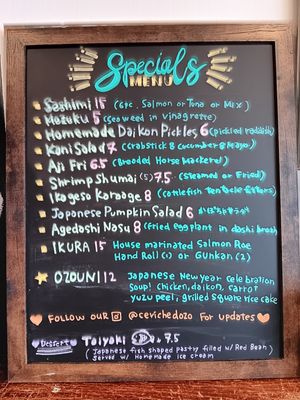 Specials
MENU
Sashimi 15 (6pc. Salmon or Tuna or Mix)
Mozuku 5 (Seaweed in vinagrette)
Homemade Daikon Pickles 6 (pickled radish)
Kani Salad 7 (Crabstick & cucumber & Mayo)
Aji Fri 6.5 (Breaded Horse Mackerel)
Shrimp Shumai (5) 7.5 (Steamed or Fried)
Ikageso Karaage 8 (cuttlefish tentacle fritters)
Japanese Pumpkin Salad 6 かぼちゃサラダ
Agedashi Nasu 8 (fried eggplant in dashi broth)
IKURA 15 House marinated Salmon Roe
Hand Roll (1) or Gunkan (2)
OZOUNI 12 Japanese New year Celebration
Soup! Chicken, daikon, carrot
yuzu peel, grilled square rice cake
Follow our @cevichedozo For Updates
Dessert Taiyaki 7.5
(Japanese fish shaped pastry filled w/ Red Bean)
Served w/ Homemade ice cream